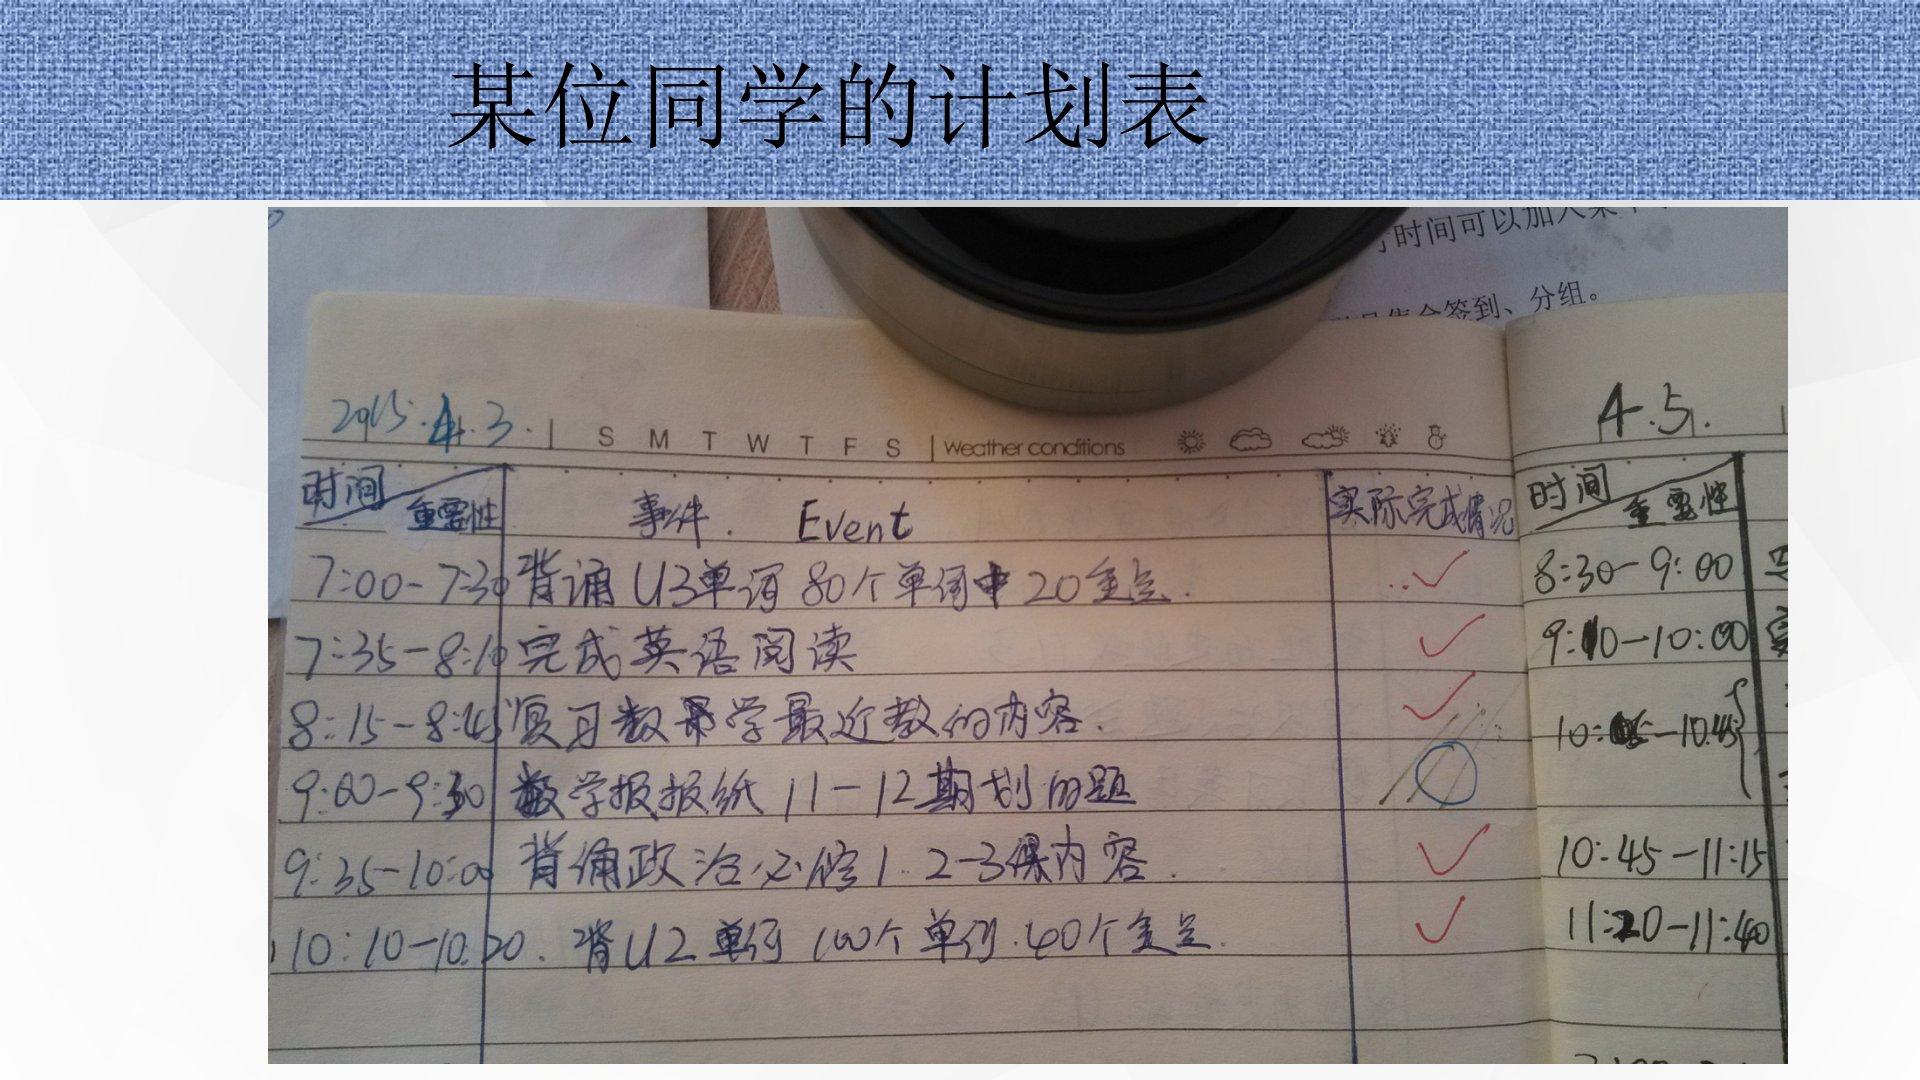 某位同学的计划表
时间可以加入某
集合签到、分组。
2015.4.3.
S M T W T F S Weather conditions
时间 重要性 事件. Event 实际完成情况
7:00-7:30 背诵U3单词 80个单词中20重点.
7:35-8:10 完成英语阅读
8:15-8:45 复习数学最近教的内容.
9:00-9:30 数学报报纸11-12期划的题
9:35-10:00 背诵政治必修1.2-3课内容.
10:10-10:20. 背U2单词 100个单词.40个重点.
4.5.
时间 重要性
8:30-9:00
9:10-10:00
-10:45
10:45-11:15
11:20-11:40